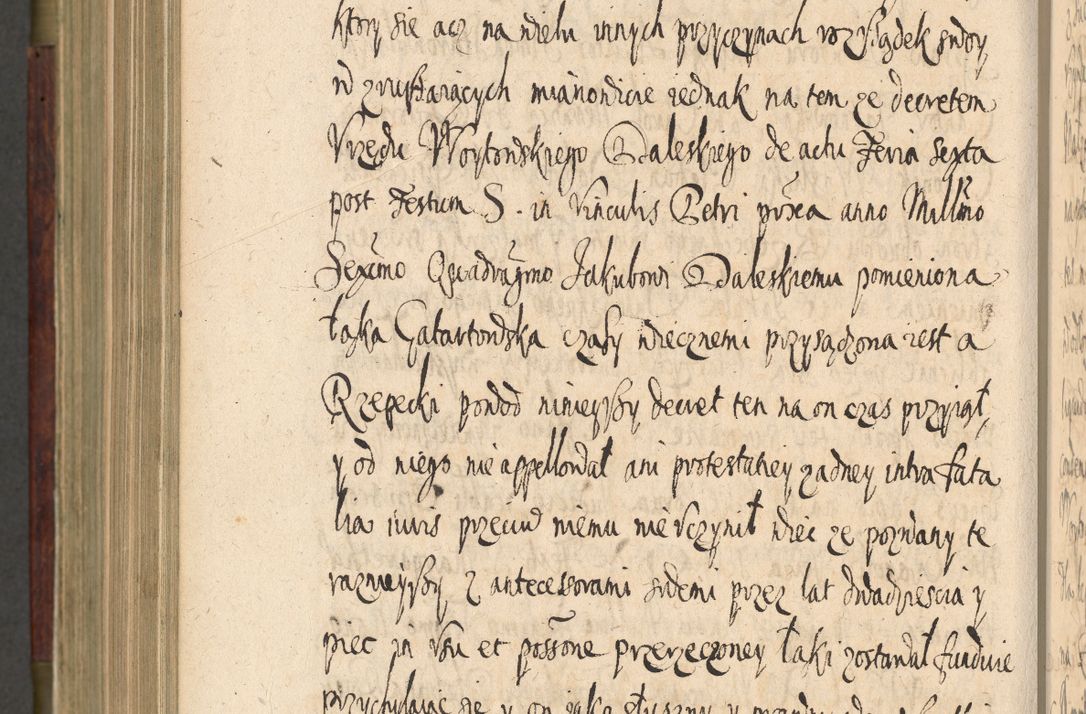 ktory sie acz na wielu innych przyczynach rozsządek swoy
w zruszaiących mianowicie iednak na tem ze decretem
Vrzędu Woytowskiego Zdaleskiego de actu Feria Sexta
post Festum S. in Vinculis Petri prxa anno Millmo
Sexcmo Quadragmo Jakubowi Zdaleskiemu pomieniona
łąka Gatartowska czasy wiecznemi przysądzona iest a
Rzepecki powod ninieyszy decret ten na on czas przyiął
y od niego nie appellował ani protestatiey zadney intra fata
lia iuris przeciw niemu nie vczynił wiec ze pozwany te
raznieyszy z antecessorami swemi przez lat dwadziescia y
piec in vsu et possone przerzeczoney łąki zostawał funduie
przychylaiąc sie y on iako słuszny y